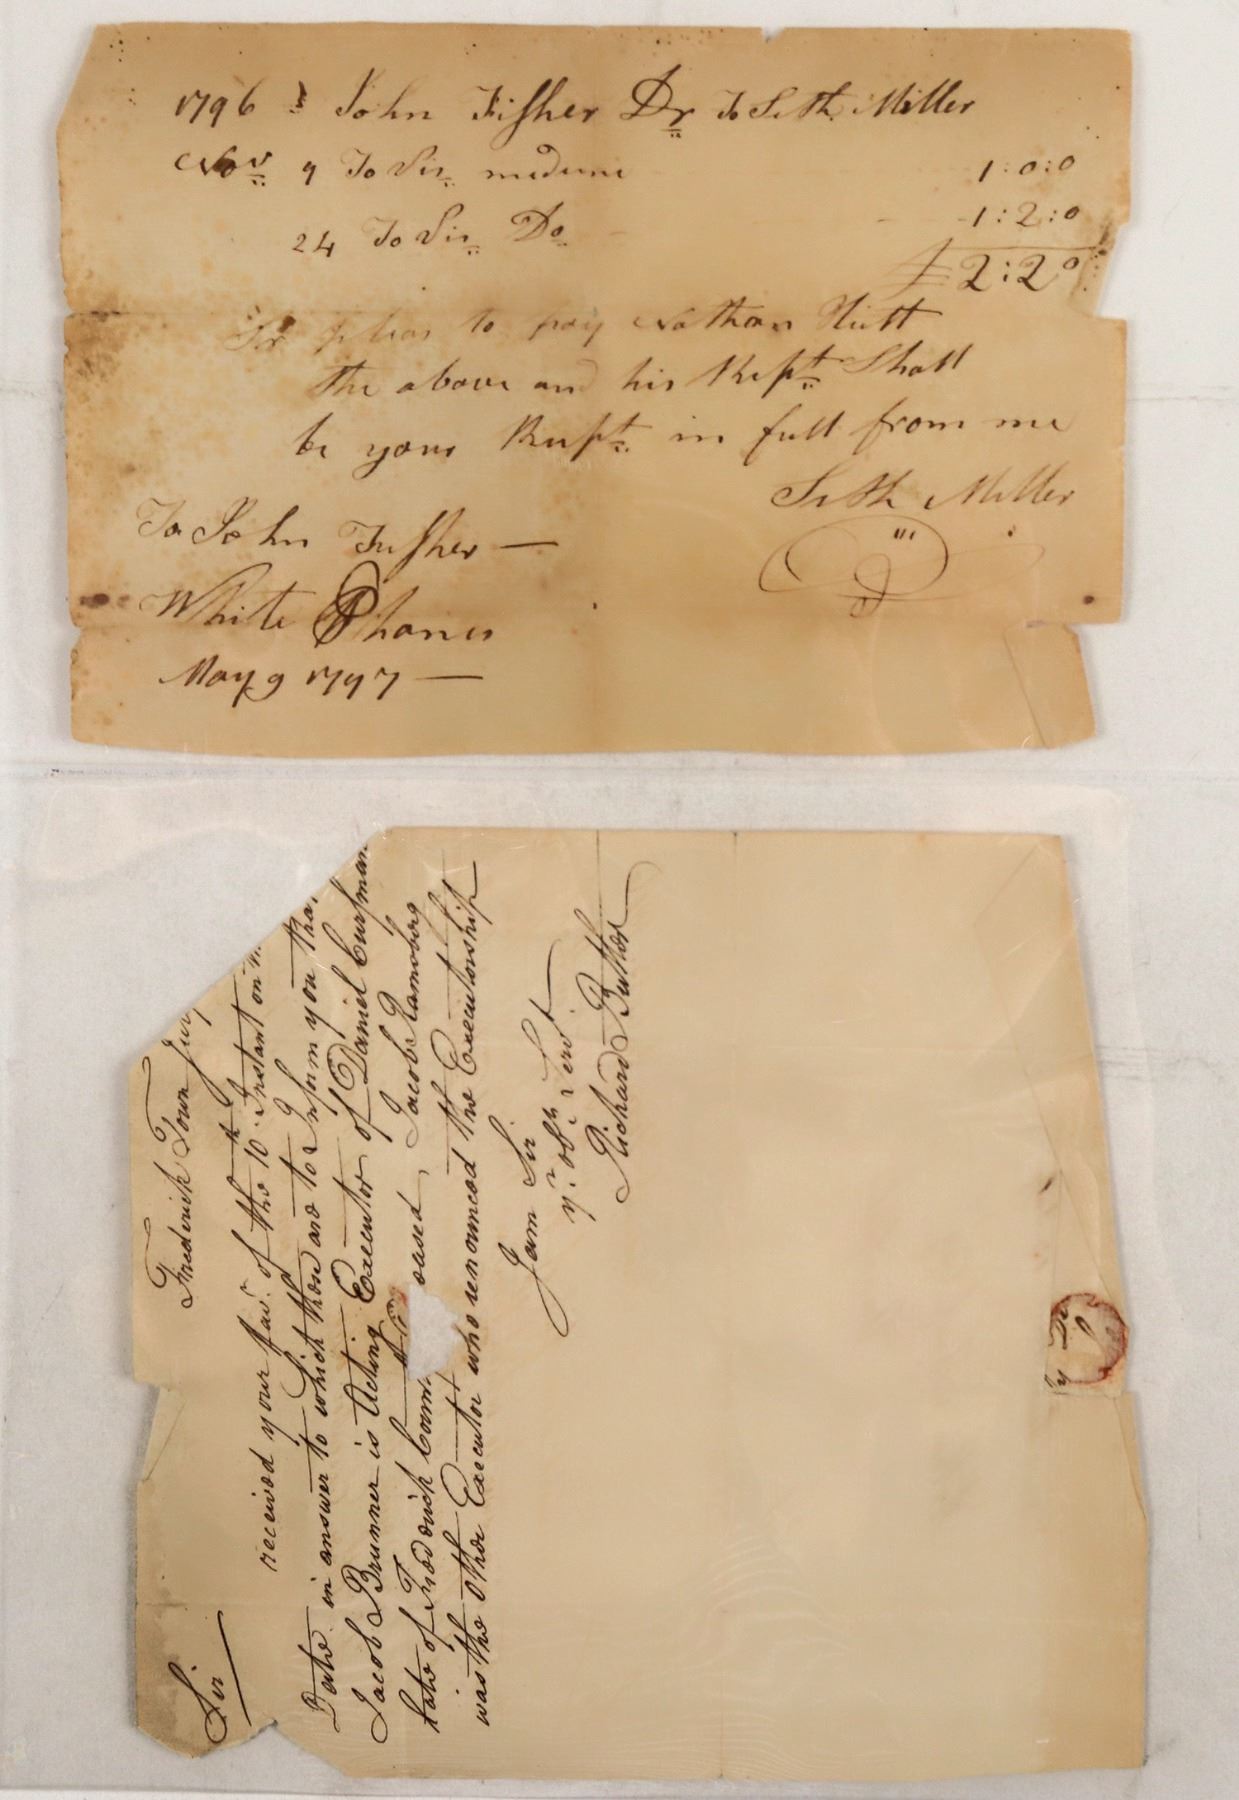 1796 John Fisher Dr To Seth Miller
Nov 9 To Vis medsine 1:0:0
24 To Vis Do 1:2:0
£ 2:2 0
Sr pleas to pay Nathan Nutt
the above and his Resپt Shall
be your Resپt in full from me
Seth Miller
To John Fisher —
White Phanes
May 9 1797 —
Frederick Town
Sir
received your favr of the 10th Instant on
Date in answer to which these are to Inform you tha
Jacob Brunner is Acting Executor of Daniel
late of Frederick eased, Jacob Ramsberg
was the other Executor who renounced the Executorship
I am Sir
yr obt Servt
Richard Butler